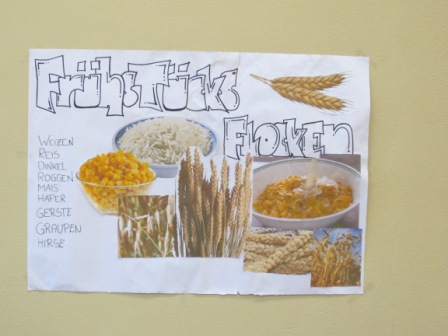 Frühstücks
Flocken
WEIZEN
REIS
DINKEL
ROGGEN
MAIS
HAFER
GERSTE
GRAUPEN
HIRSE